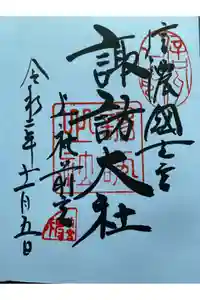 信濃國一之宮
諏訪大社
上社前宮
令和三年十一月五日